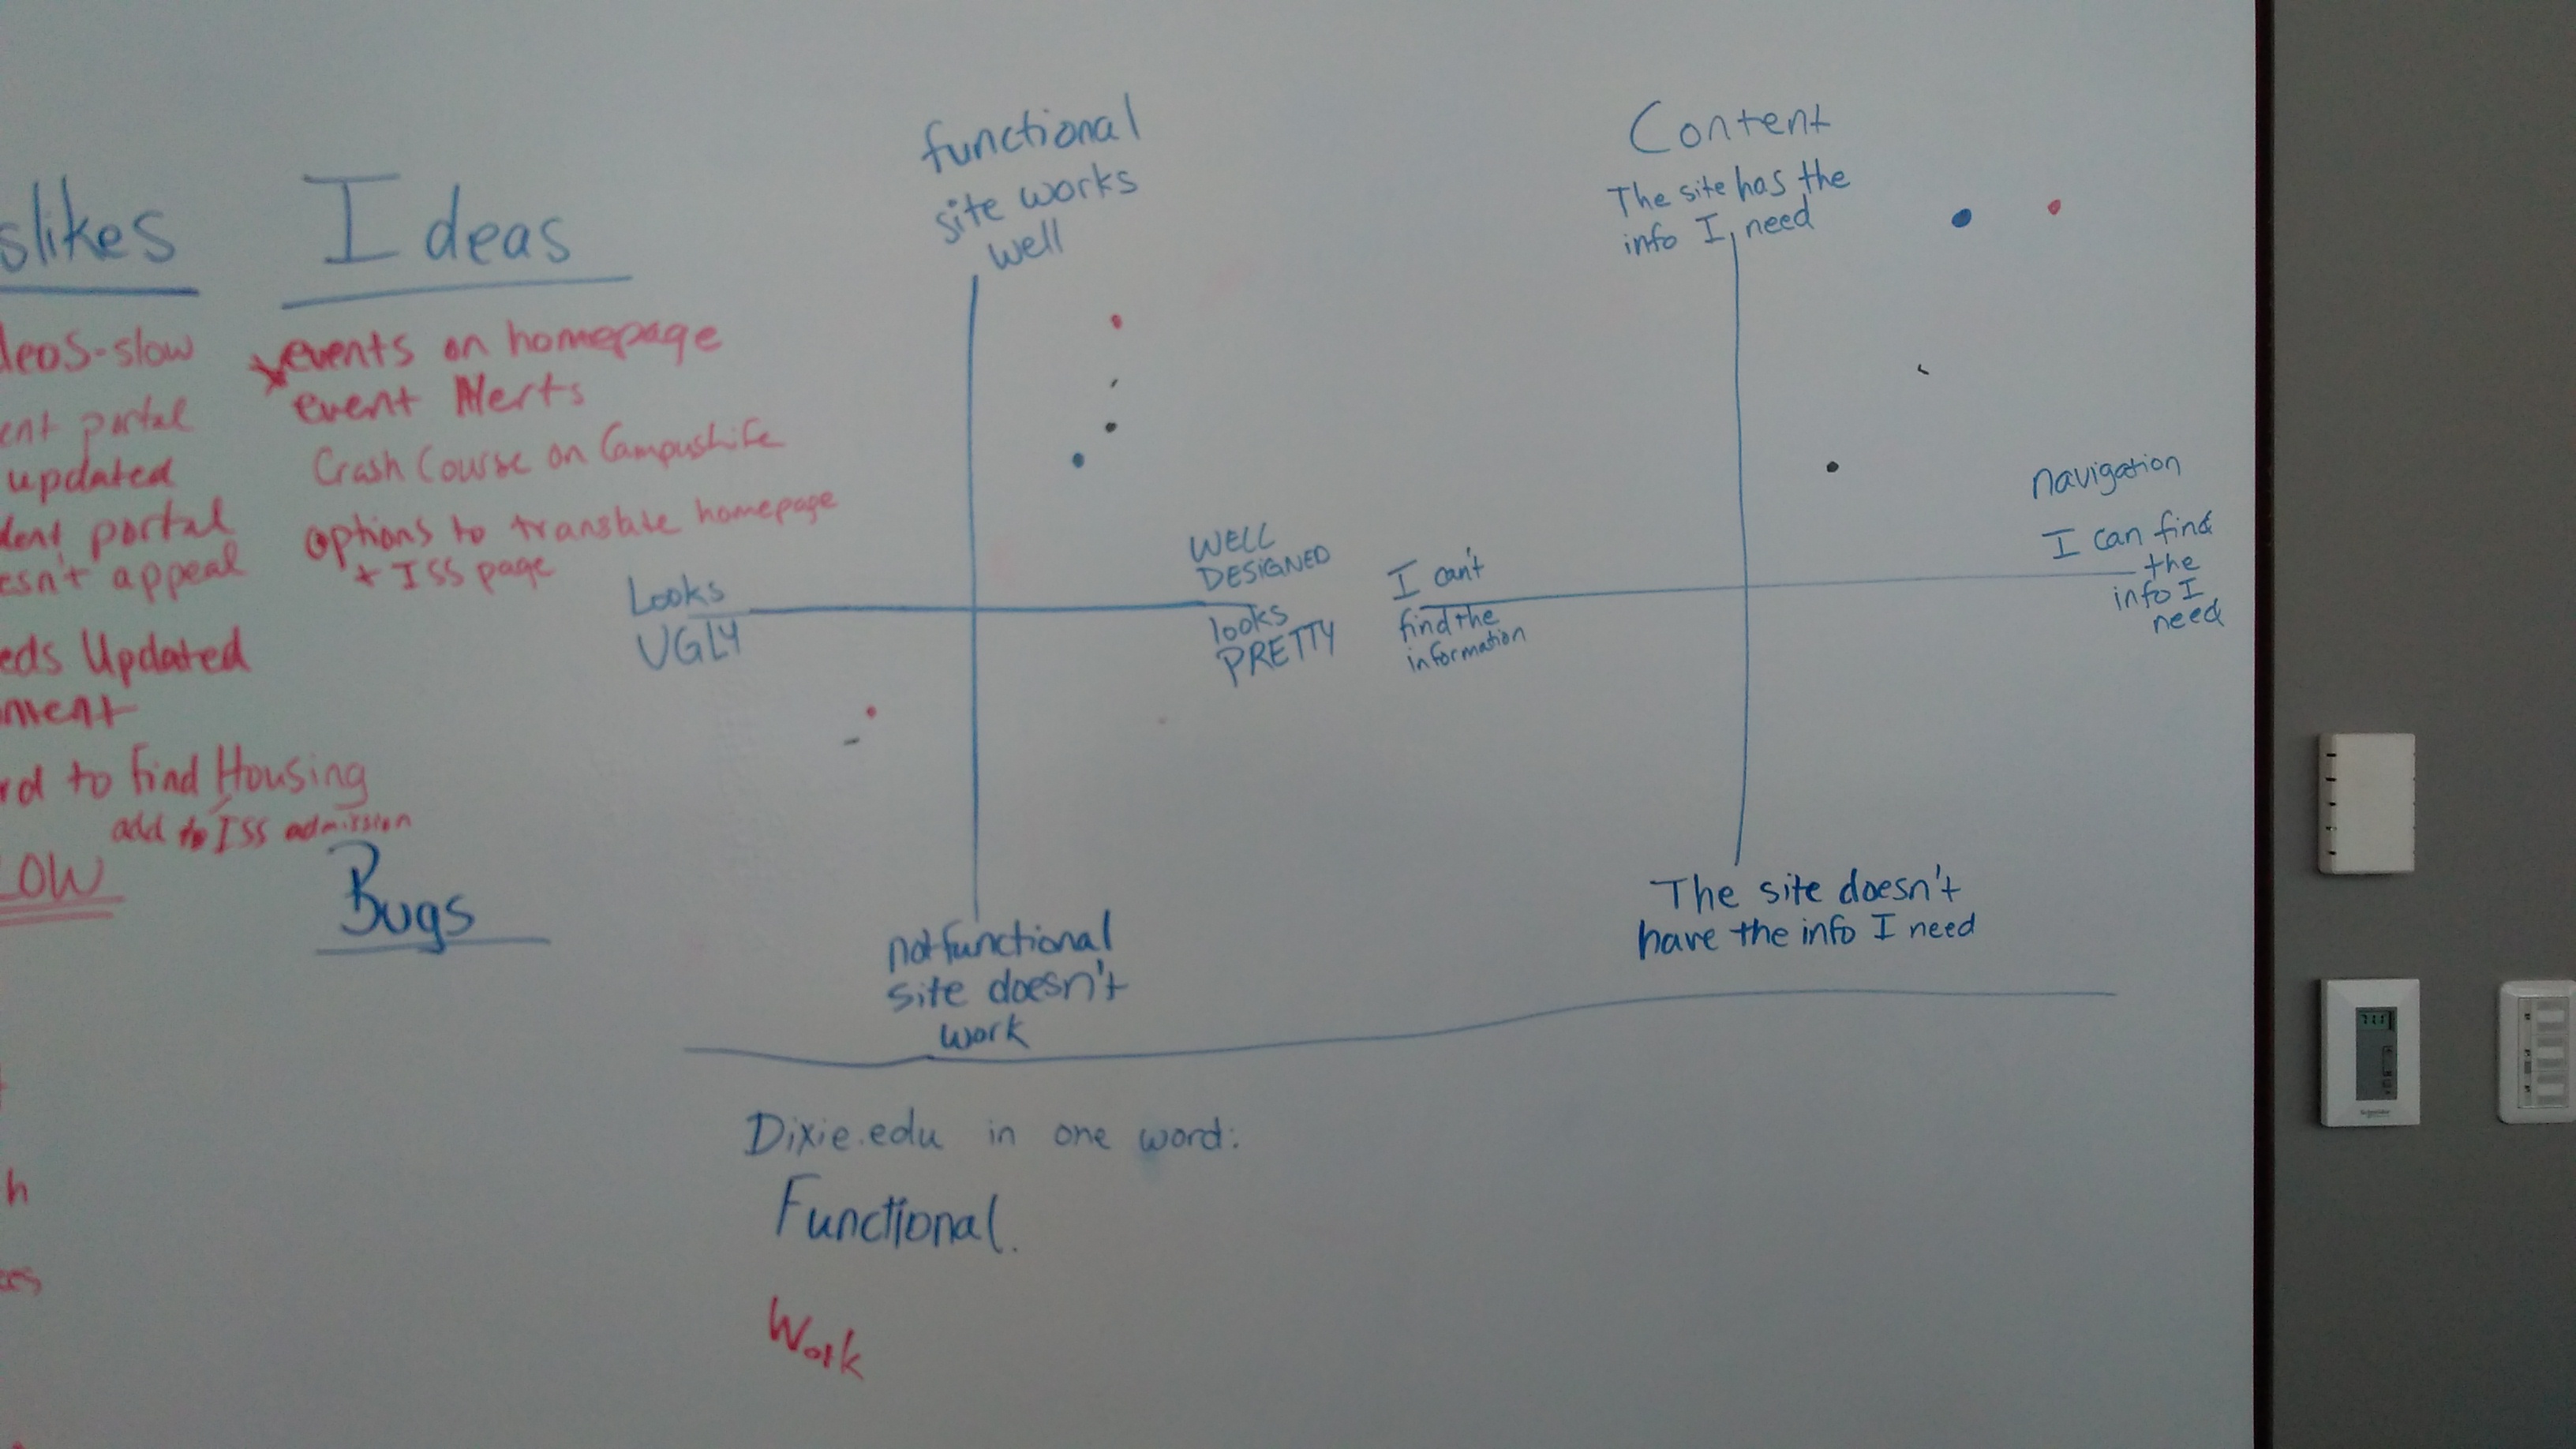 slikes
deos-slow
ent portal
updated
dent portal
esn't appeal
eds Updated
ment
rd to find Housing
add to ISS admission
LOW
h
ces
Ideas
events on homepage
event Alerts
Crash Course on CampusLife
options to translate homepage
+ ISS page
Bugs
functional
site works
well
Looks
UGLY
WELL
DESIGNED
looks
PRETTY
not functional
site doesn't
work
Content
The site has the
info I need
I can't
find the
information
navigation
I can find
the
info I
need
The site doesn't
have the info I need
Dixie.edu in one word:
Functional.
Work